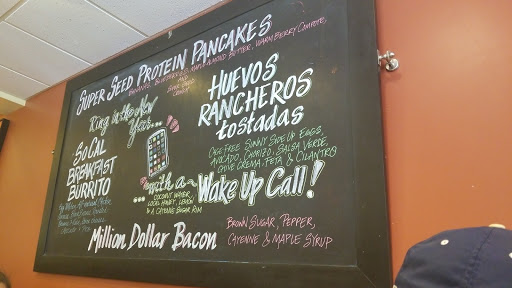 SUPER SEED PROTEIN PANCAKES
BANANAS, BLUEBERRIES, MAPLE ALMOND BUTTER, WARM BERRY COMPOTE,
AND
SUPER SEED
Ring in the New
Year...
HUEVOS
RANCHEROS
tostadas
CAGE FREE SUNNY SIDE UP EGGS,
AVOCADO, CHORIZO, SALSA VERDE,
CHIVE CREMA, FETA & CILANTRO
SO CAL
BREAKFAST
BURRITO
...with a~ WAKE UP CALL!
COCONUT WATER,
LOCAL HONEY, LEMON
& A CAYENNE SUGAR RIM
MILLION DOLLAR BACON
BROWN SUGAR, PEPPER,
CAYENNE & MAPLE SYRUP